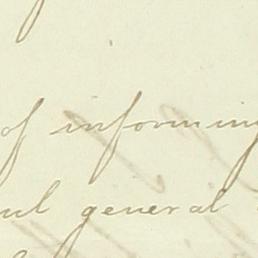 of informing
general